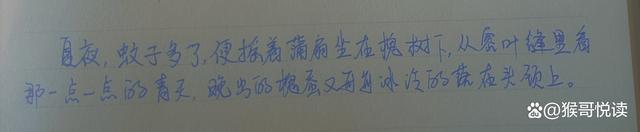 夏夜，蚊子多了，便摇着蒲扇坐在槐树下，从密叶缝里看
那一点一点的青天，晚出的槐蚕又每每冰冷的落在头颈上。
@猴哥悦读